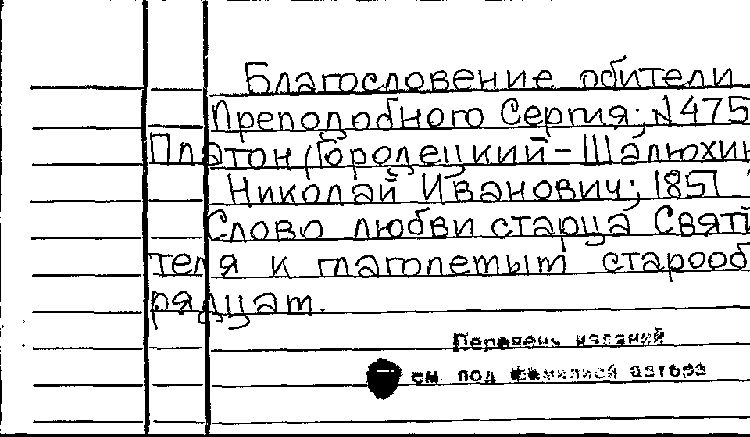 Благословение обители
Преподобного Сергия; N475
Платон (Городецкий-Шалюхин
Николай Иванович; 1851
Слово любви старца Святи
теля к глаголемым старооб
рядцам.
Перечень изданий
см. под фамилией автора